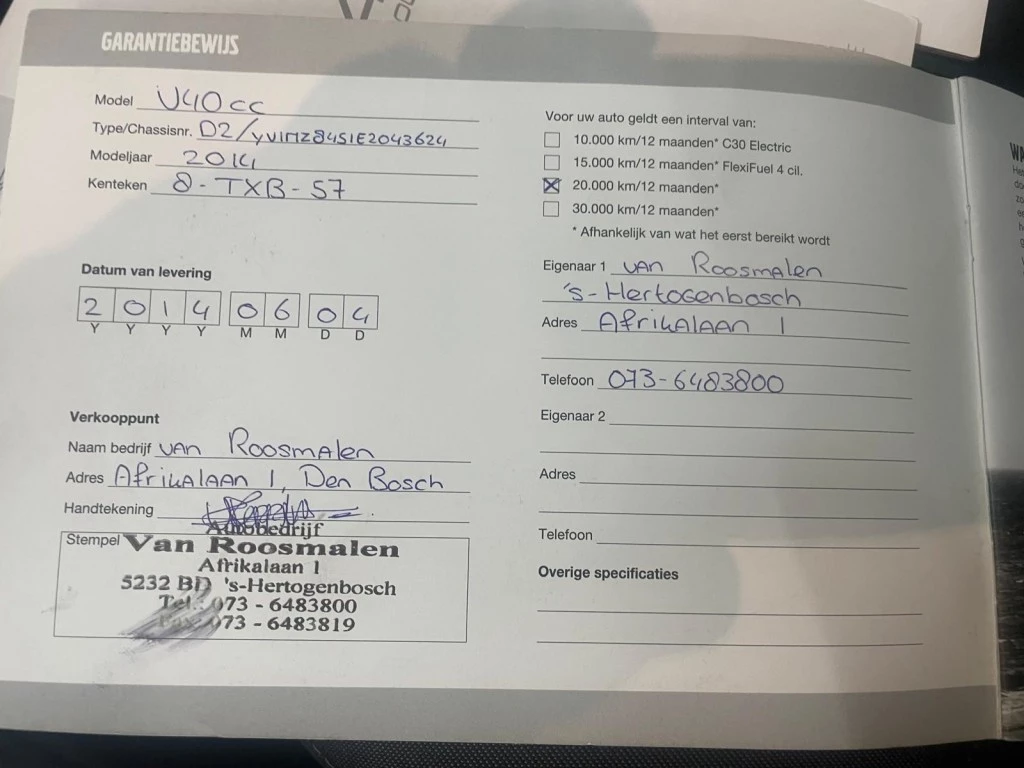 GARANTIEBEWIJS
Model V40cc
Type/Chassisnr. D2/YV1MZ8451E2043624
Modeljaar 2014
Kenteken 8-TXB-57
Datum van levering
2 0 1 4 0 6 0 4
Y Y Y Y M M D D
Verkooppunt
Naam bedrijf van Roosmalen
Adres Afrikalaan 1, Den Bosch
Handtekening
Stempel
Autobedrijf
Van Roosmalen
Afrikalaan 1
5232 BD 's-Hertogenbosch
Tel.: 073 - 6483800
Fax: 073 - 6483819
Voor uw auto geldt een interval van:
10.000 km/12 maanden* C30 Electric
15.000 km/12 maanden* FlexiFuel 4 cil.
20.000 km/12 maanden*
30.000 km/12 maanden*
* Afhankelijk van wat het eerst bereikt wordt
Eigenaar 1 van Roosmalen
's-Hertogenbosch
Adres Afrikalaan 1
Telefoon 073-6483800
Eigenaar 2
Adres
Telefoon
Overige specificaties